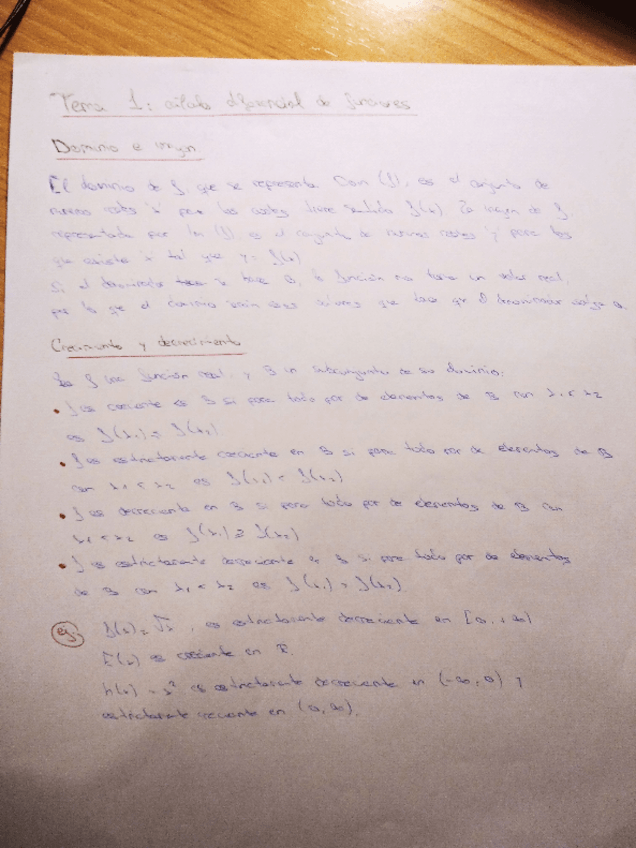 Tema 1: cálculo diferencial de funciones
Dominio e imagen
El dominio de f que se representa Dom (f), es el conjunto de
números reales 'x' para los cuales tiene sentido f(x). La imagen de f,
representada por Im (f), es el conjunto de números reales 'y' para los
que existe 'x' tal que y = f(x)
Si el denominador se hace 0, la función no tiene un valor real,
por lo que el dominio serán esos valores que hace que el denominador valga 0.
Crecimiento y decrecimiento
Sea f una función real, y B un subconjunto de su dominio:
• f es creciente en B si para todo par de elementos de B con x₁ < x₂
es f(x₁) ≤ f(x₂)
• f es estrictamente creciente en B si para todo par de elementos de B
con x₁ < x₂ es f(x₁) < f(x₂)
• f es decreciente en B si para todo par de elementos de B con
x₁ < x₂ es f(x₁) ≥ f(x₂)
• f es estrictamente decreciente en B si para todo par de elementos
de B con x₁ < x₂ es f(x₁) > f(x₂)
ej: f(x) = √x, es estrictamente decreciente en [0, +∞)
E(x) es creciente en R.
h(x) = x² es estrictamente decreciente en (-∞, 0) y
estrictamente creciente en (0, ∞).